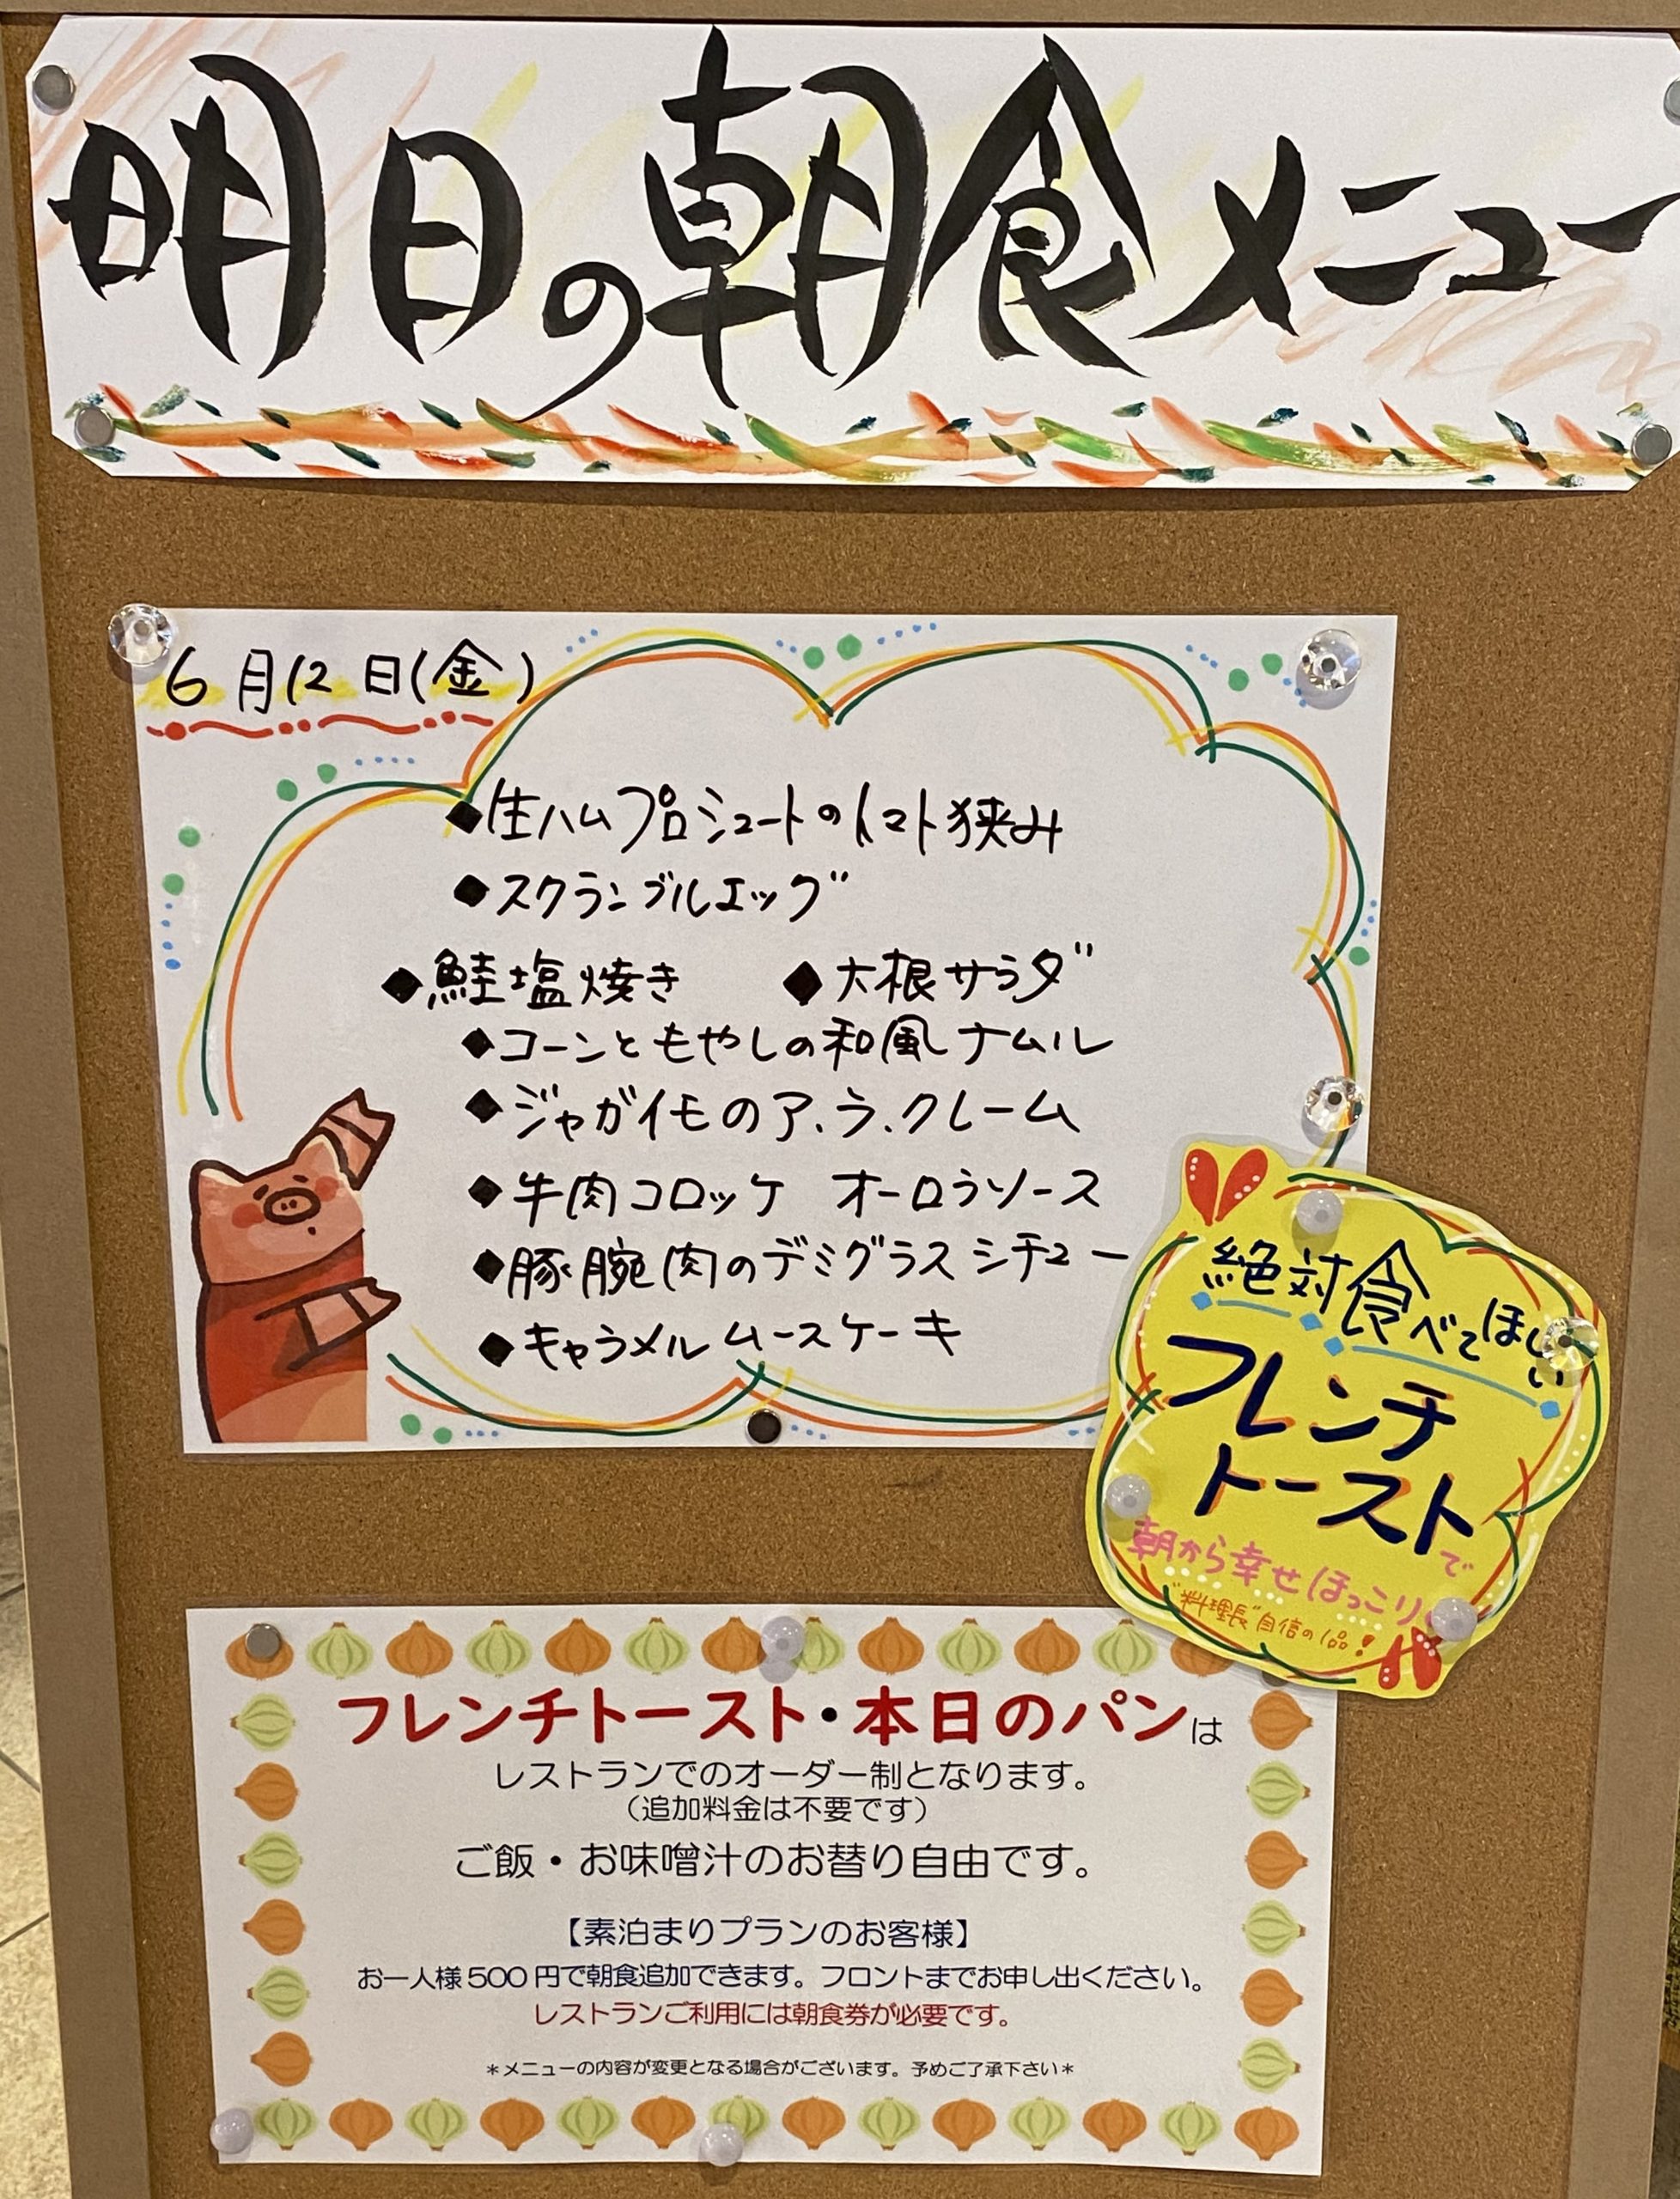 明日の朝食メニュー
6月12日(金)
◆生ハムプロシュートのトマト狭み
◆スクランブルエッグ
◆鮭塩焼き ◆大根サラダ
◆コーンともやしの和風ナムル
◆ジャガイモのア.ラ.クレーム
◆牛肉コロッケ オーロラソース
◆豚腕肉のデミグラスシチュー
◆キャラメルムースケーキ
絶対食べてほしい
フレンチ
トーストで
朝から幸せほっこり
"料理長"自信の1品!
フレンチトースト・本日のパンは
レストランでのオーダー制となります。
（追加料金は不要です）
ご飯・お味噌汁のお替り自由です。
【素泊まりプランのお客様】
お一人様500円で朝食追加できます。フロントまでお申し出ください。
レストランご利用には朝食券が必要です。
＊メニューの内容が変更となる場合がございます。予めご了承下さい＊